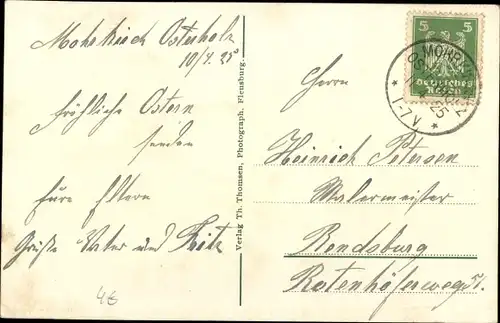 Mohrkirch Osterholz
10/4. 25
Fröhliche Ostern
senden
Eure Eltern
Grüße Vater und Fritz
4€
Verlag Th. Thomsen, Photograph, Flensburg.
5 5
Deutsches
Reich
MOHRKIRCH
1-7 V
Herrn
Heinrich Petersen
Malermeister
Rendsburg
Rotenhöferweg 51.